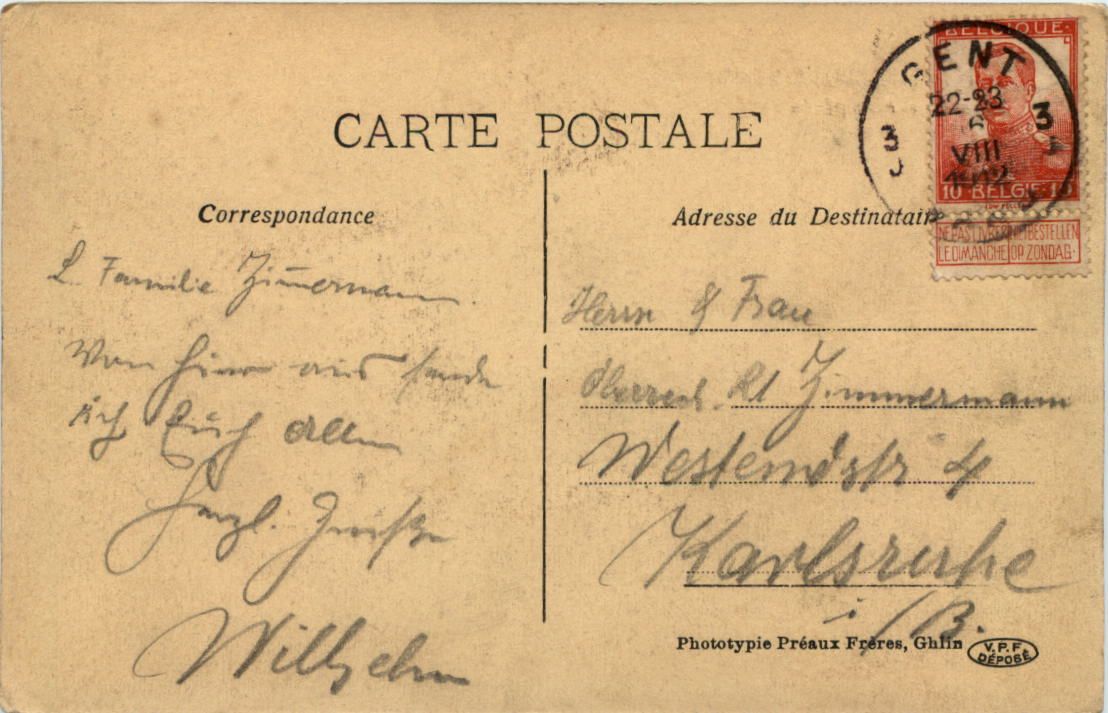 CARTE POSTALE
Correspondance
L. Familie Zimmermann.
Von hier aus sende
ich Euch allen
herzl. Grüße
Wilhelm
BELGIQUE
GENT
22-23
6
VIII
1912
3 3
10 BELGIE 10
NE PAS LIVRER NIET BESTELLEN
LE DIMANCHE OP ZONDAG
Adresse du Destinatair
Herrn & Frau
Zimmermann
Westendstr 4
Karlsruhe
i/B.
Phototypie Préaux Frères, Ghlin
V.P.F
DÉPOSÉ